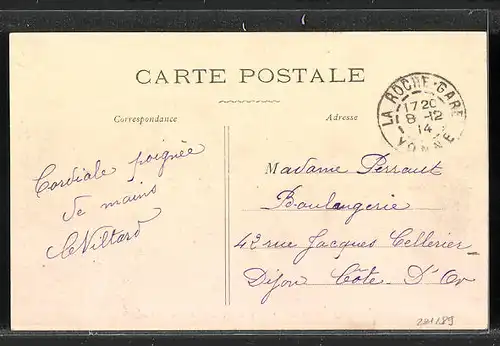 CARTE POSTALE
Correspondance
Adresse
LA ROCHE-GARE
1720
8-12
14
YONNE
Cordiale poignée
de mains
Madame Perraut
Boulangerie
42 rue Jacques Cellerier
Dijon Côte D'Or